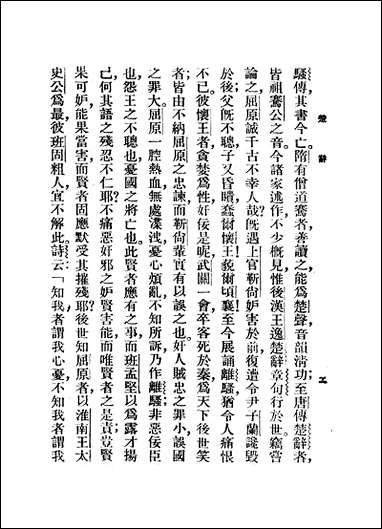 楚辭
騷傳，其書今亡。隋有僧道騫者善讀之能為楚聲音韻淸切；至唐傳楚辭者，
皆祖騫公之音。今諸家遞作，不少槪見惟後漢王逸楚辭章句行於世。竊嘗
論之屈原誠千古不幸人哉！旣遇上官靳尙妒害於前，復遭令尹子蘭讒毀
於後；父旣不聰子又昏聵蠢爾懷王！貌爾頃襄！至今展誦離騷猶令人痛恨
不已。彼懷王者貪婪為性，奸佞是昵，武關一會，卒客死於秦，為天下後世笑
者；皆由不納屈原之忠諫，而靳尙輩實有以誤之也。奸人賊忠之罪小，誤國
之罪大。屈原一腔熱血，無處渫洩，憂心煩亂，不知所訴，乃作離騷；非惡佞臣
也，怨王之不聰也，憂國之將亡也。此賢者應有之事，而班孟堅以為露才揚
己，何其語之殘忍不仁耶？不痛惡奸邪之妒賢害能，而唯賢者之是責，豈賢
果可妒，能果當害，而賢者固應默受其摧殘耶？後世知屈原者以淮南王太
史公為最，彼班固粗人，宜不解此。詩云：「知我者謂我心憂，不知我者謂我